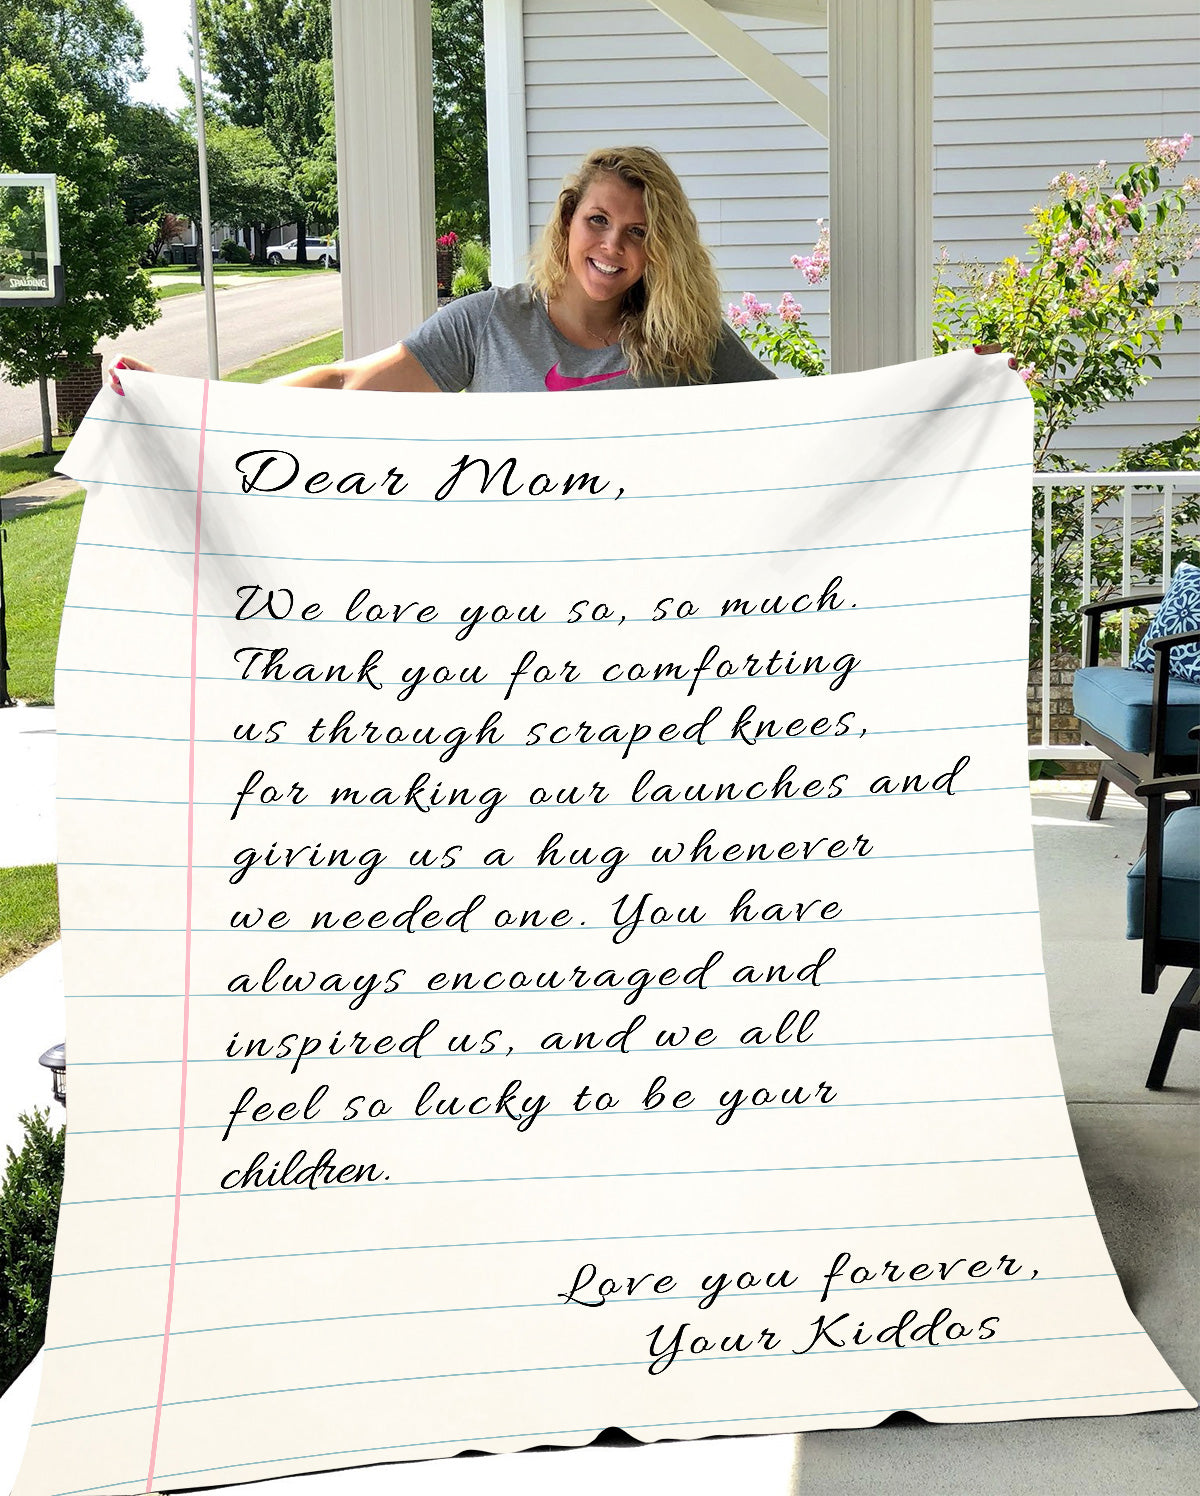 SPALDING
Dear Mom,
We love you so, so much.
Thank you for comforting
us through scraped knees,
for making our launches and
giving us a hug whenever
we needed one. You have
always encouraged and
inspired us, and we all
feel so lucky to be your
children.
Love you forever,
Your Kiddos